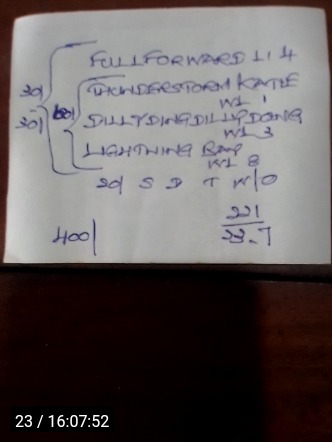 FULLFORWARD L1 4
30/ 60/ THUNDERSTORM KATIE
30/ W1 1
DILLYDINGDILLYDONG
W1 3
LIGHTNING BAY
W1 8
20/ S D T W/O
221
400/ 23.7
23 / 16:07:52